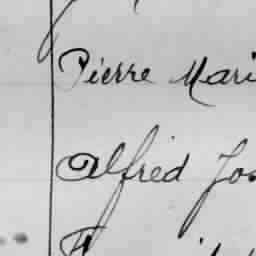 Pierre Mari
Alfred Jos